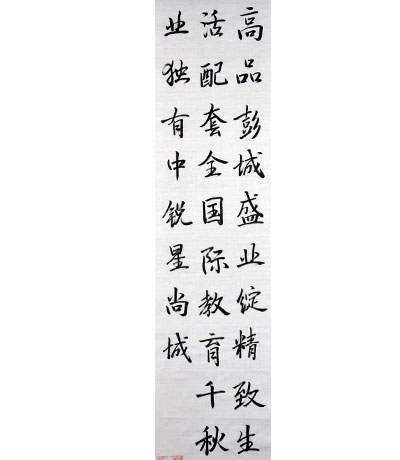 高品彭城盛业绽精致生
活配套全国际教育千秋
业独有中锐星尚城